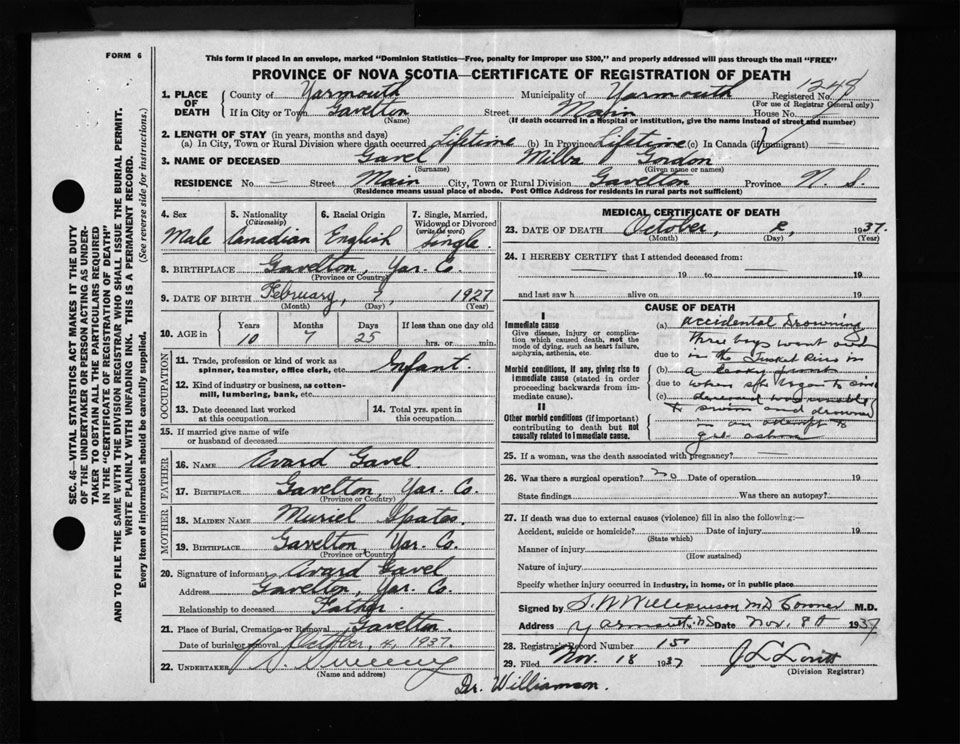 FORM 6
This form if placed in an envelope, marked "Dominion Statistics—Free, penalty for improper use $300," and properly addressed will pass through the mail "FREE"
PROVINCE OF NOVA SCOTIA—CERTIFICATE OF REGISTRATION OF DEATH
1248
1. PLACE OF DEATH
County of Yarmouth Municipality of Yarmouth Registered No.
(For use of Registrar General only)
If in City or Town Gavelton Street Main House No.
(Name) (If death occurred in a hospital or institution, give the name instead of street and number)
2. LENGTH OF STAY (in years, months and days)
(a) In City, Town or Rural Division where death occurred Lifetime (b) In Province Lifetime (c) In Canada (if immigrant) —
3. NAME OF DECEASED Gavel Gordon
(Surname) (Given name or names)
RESIDENCE No. — Street Main City, Town or Rural Division Gavelton Province N. S.
(Residence means usual place of abode. Post Office Address for residents in rural parts not sufficient)
4. Sex Male
5. Nationality (Citizenship) Canadian
6. Racial Origin English
7. Single, Married, Widowed or Divorced (write the word) Single
8. BIRTHPLACE Gavelton, Yar. Co.
(Province or Country)
9. DATE OF BIRTH February, 7, 1927
(Month) (Day) (Year)
10. AGE in Years Months Days If less than one day
10 7 25 hrs. or min.
OCCUPATION
11. Trade, profession or kind of work as spinner, teamster, office clerk, etc. Infant
12. Kind of industry or business, as cotton-mill, lumbering, bank, etc.
13. Date deceased last worked at this occupation
14. Total yrs. spent in this occupation
15. If married give name of wife or husband of deceased
FATHER
16. NAME Avard Gavel
17. BIRTHPLACE Gavelton, Yar. Co.
(Province or Country)
MOTHER
18. MAIDEN NAME Muriel
19. BIRTHPLACE Gavelton, Yar. Co.
(Province or Country)
20. Signature of informant Avard Gavel
Address Gavelton, Yar. Co.
Relationship to deceased Father
21. Place of Burial, Cremation or Removal Gavelton
Date of burial or removal October, 4, 1937.
22. UNDERTAKER Sweeney
(Name and address)
Dr. Williamson.
MEDICAL CERTIFICATE OF DEATH
23. DATE OF DEATH October, 2, 1937.
(Month) (Day) (Year)
24. I HEREBY CERTIFY that I attended deceased from:
— 19 to — 19
and last saw h alive on 19
CAUSE OF DEATH
I
Immediate cause
Give disease, injury or complication which caused death, not the mode of dying, such as heart failure, asphyxia, asthenia, etc.
Morbid conditions, if any, giving rise to immediate cause (stated in order proceeding backwards from immediate cause).
II
Other morbid conditions (if important) contributing to death but not causally related to immediate cause.
(a) Accidental Drowning
Three boys went out
due to in the Tusket River in
(b) a leaky
due to when she began to sink
(c) deceased was unable
to swim and drowned
in an attempt to
get ashore
25. If a woman, was the death associated with pregnancy? —
26. Was there a surgical operation? no Date of operation 19
State findings Was there an autopsy?
27. If death was due to external causes (violence) fill in also the following:—
Accident, suicide or homicide? Date of injury 19
(State which)
Manner of injury
(How sustained)
Nature of injury
Specify whether injury occurred in industry, in home, or in public place
Signed by Williamson MD Coroner M.D.
Address Yarmouth, NS Date Nov. 8th 1937
28. Registrar's Record Number 151
29. Filed Nov. 18 1937
(Division Registrar)
SEC. 46—VITAL STATISTICS ACT MAKES IT THE DUTY
OF THE UNDERTAKER OR PERSON ACTING AS UNDER-
TAKER TO OBTAIN ALL THE PARTICULARS REQUIRED
IN THE "CERTIFICATE OF REGISTRATION OF DEATH"
AND TO FILE THE SAME WITH THE DIVISION REGISTRAR WHO SHALL ISSUE THE BURIAL PERMIT.
WRITE PLAINLY WITH UNFADING INK. THIS IS A PERMANENT RECORD.
Every item of information should be carefully supplied. (See reverse side for instructions.)